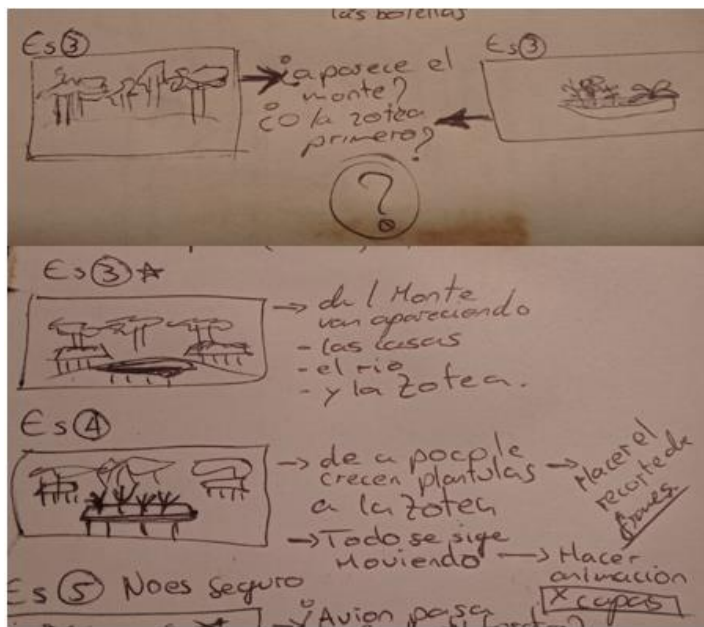 las botellas
Es ③
Es ③
¿aparece el
monte?
¿O la zotea
primero?
?
Es ③ *
→ del Monte
van apareciendo
- las casas
- el rio
- y la Zotea.
Es ④
→ de a poco le
crecen plantulas
a la zotea
→ Hacer el
recorte de
→ Todo se sige
Moviendo
→ Hacer
animación
X capas
Es ⑤ No es seguro
→ ¿Avion pasa